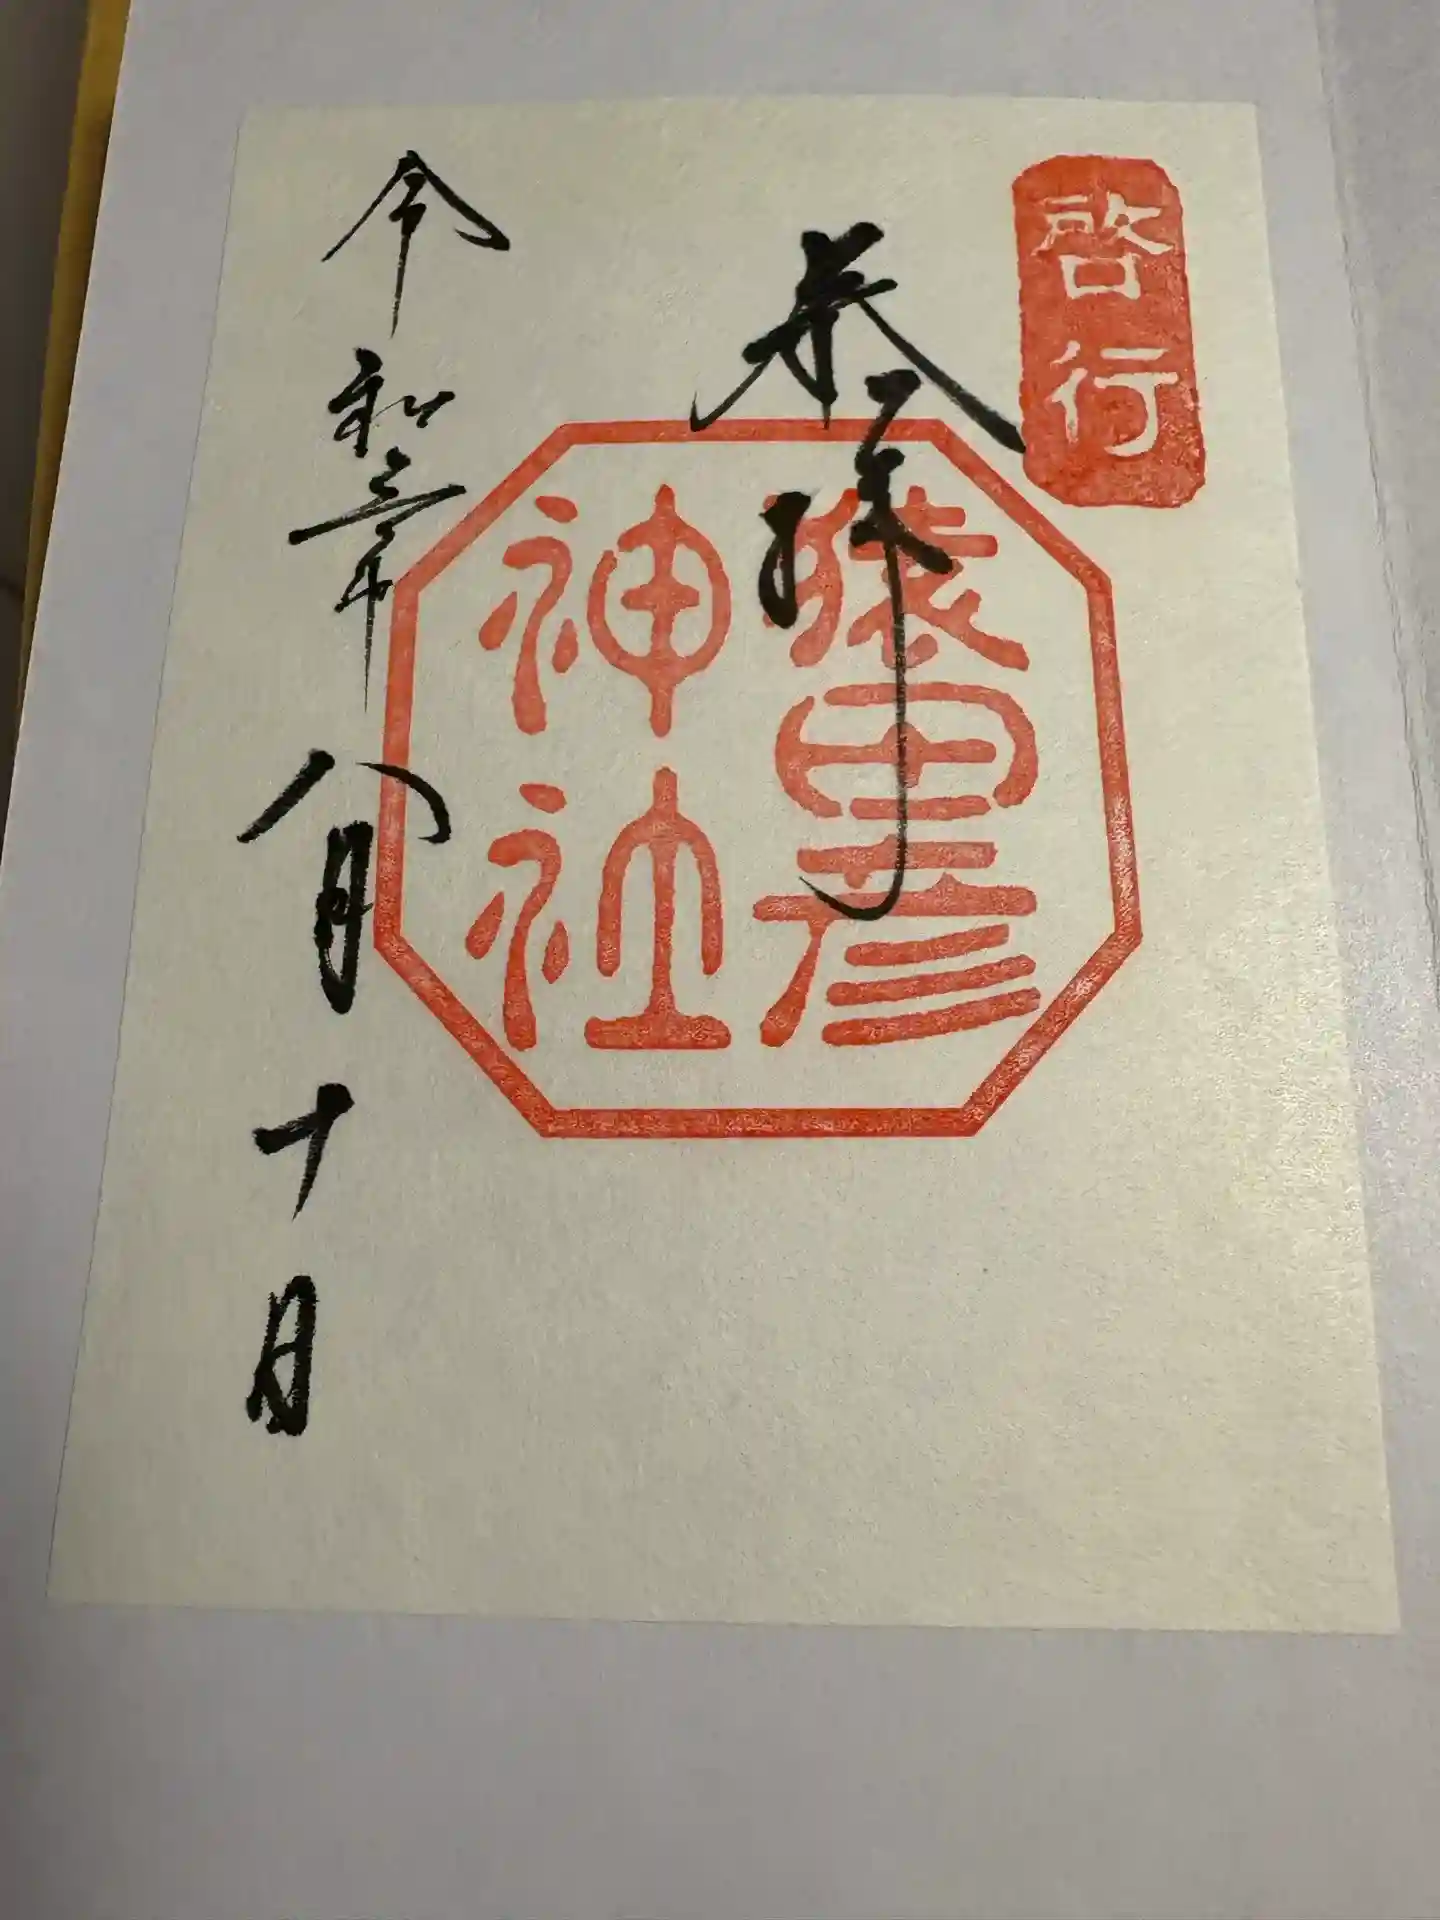 啓行
奉拝
猿田彦
神社
令和三年八月十日